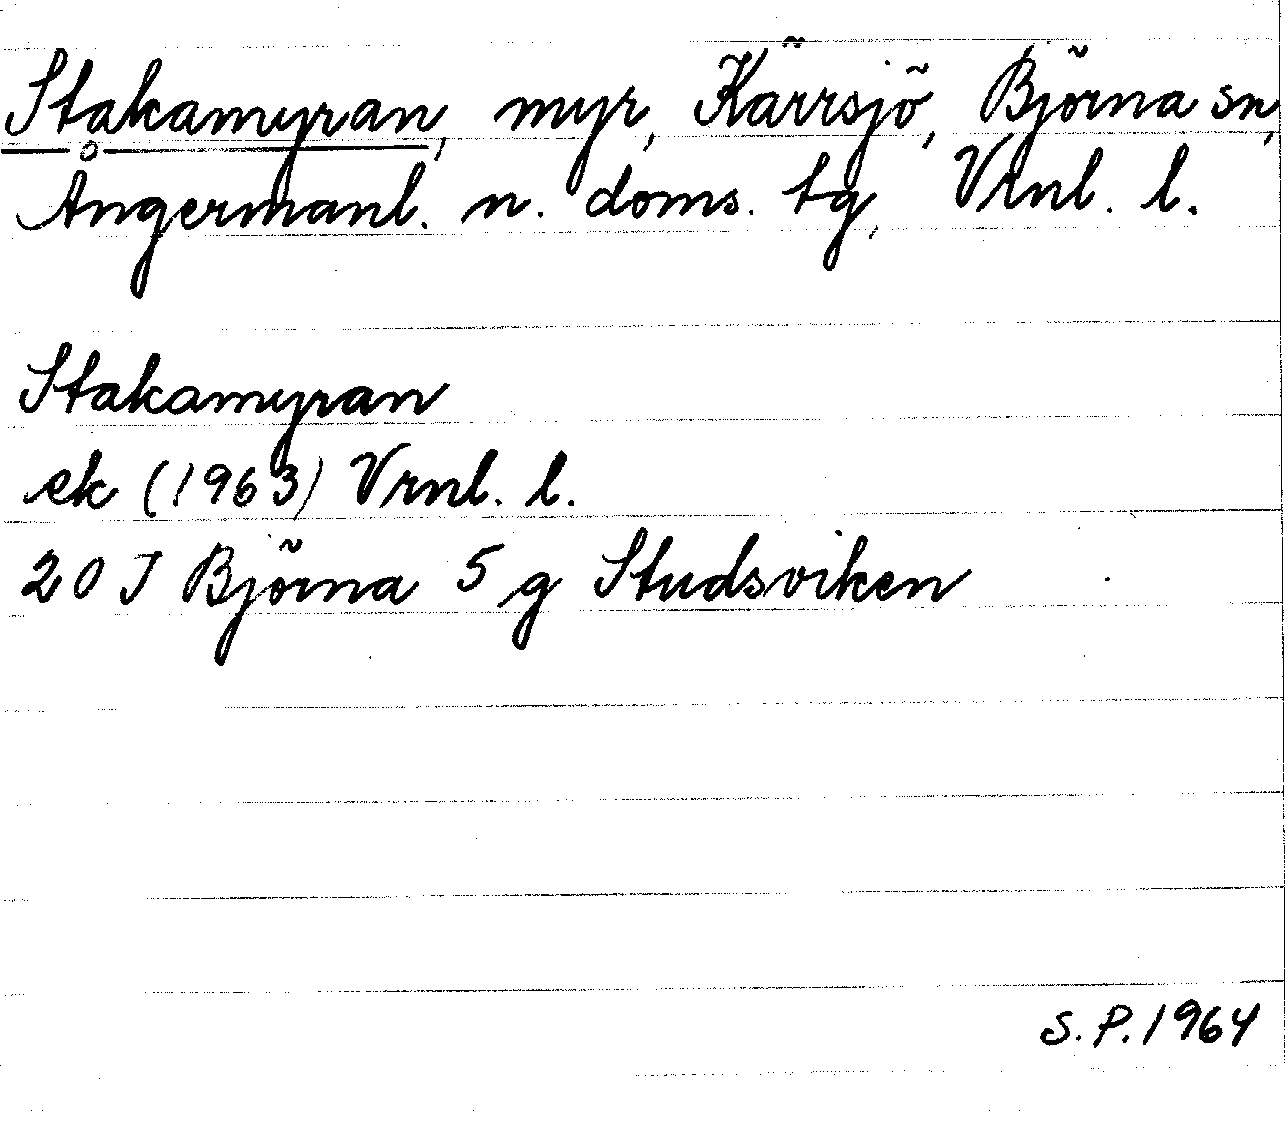 Stakamyran, myr, Kärrsjö, Björna sn,
Ångermanl. n. doms. tg, Vrnl. l.
Stakamyran
ek (1963) Vrnl. l.
20 J Björna 5 g Studsviken
S. P. 1964